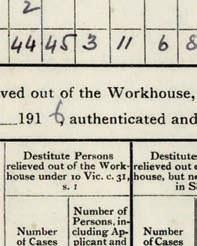 2
44 45 3 11 6 8
ved out of the Workhouse,
191 6, authenticated and
Destitute Persons
relieved out of the Work-
house under 10 Vic. c. 31,
s. 1
Destitute
relieved out
house, but n
in S
Number
of Cases
Number of
Persons, in-
cluding Ap-
plicant and
Number
of Cases